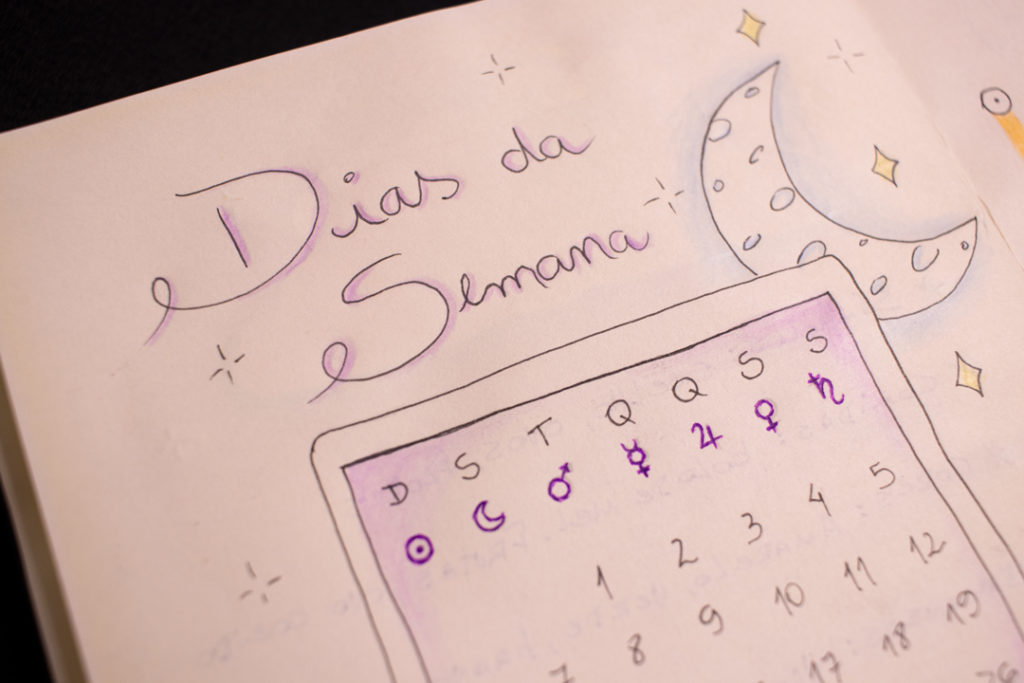 Dias da
Semana
D S T Q Q S S
☉ ☾ ♂ ☿ ♃ ♀ ♄
1 2 3 4 5
7 8 9 10 11 12
17 18 19
26